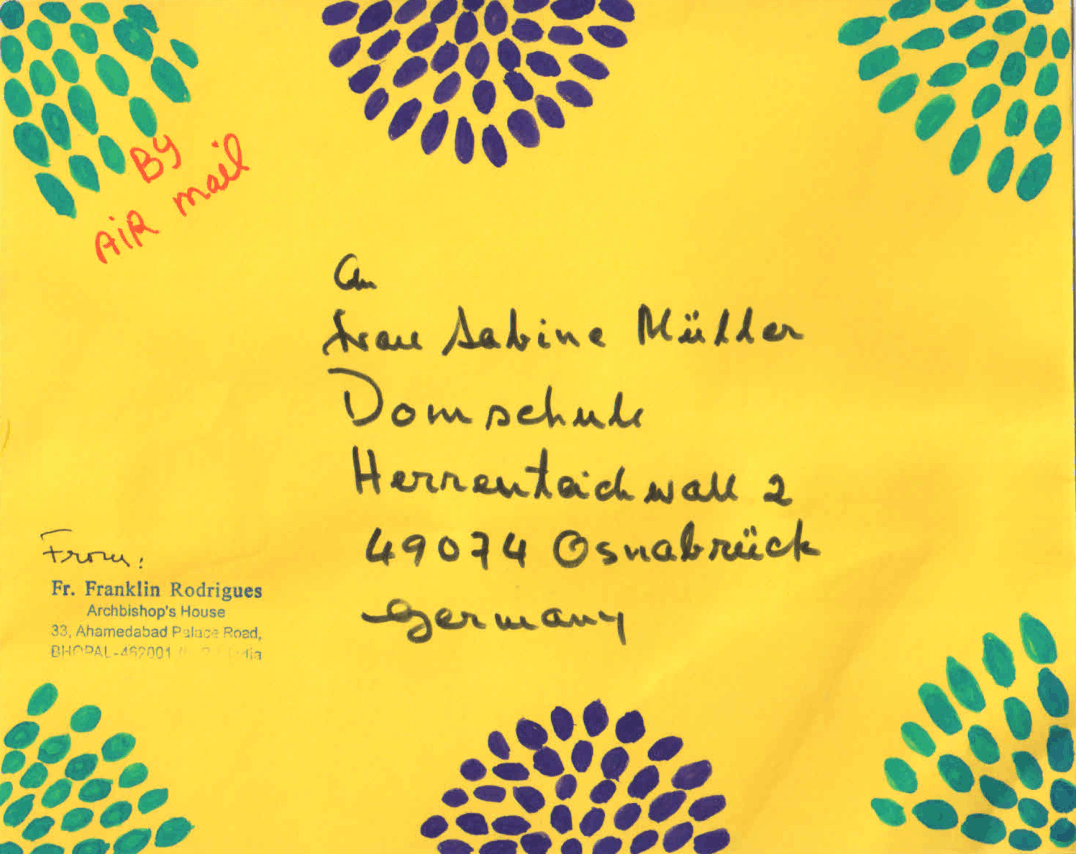 By
AiR mail
An
Frau Sabine Müller
Domschule
Herrenteichwall 2
49074 Osnabrück
Germany
From:
Fr. Franklin Rodrigues
Archbishop's House
33, Ahamedabad Palace Road,
BHOPAL-462001 India